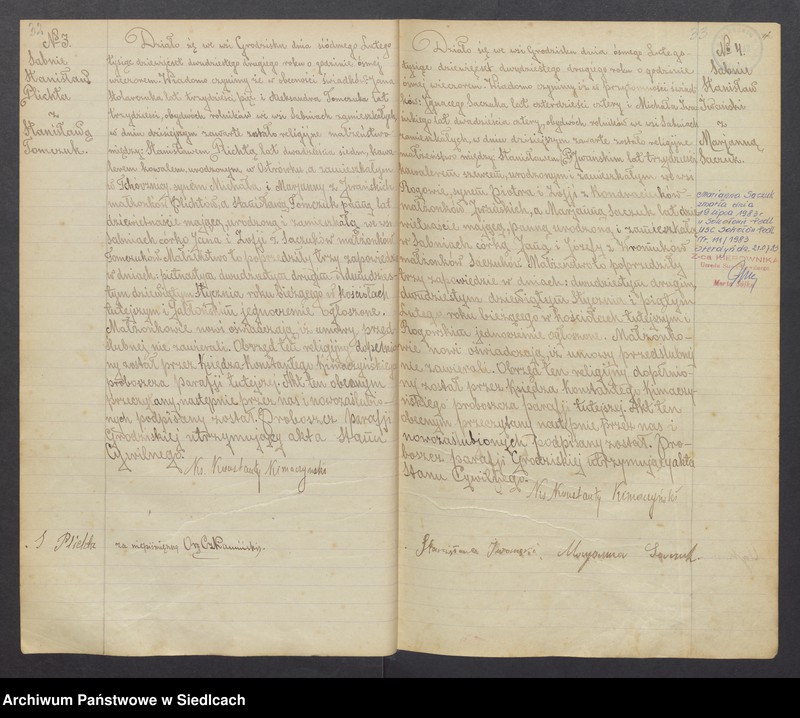 32
№ 3.
Sabnie
Stanisław
Plichta
z
Stanisławą
Tomczuk.
Działo się we wsi Grodzisku dnia siódmego Lutego
tysiąc dziewięcset dwudziestego drugiego roku o godzinie ósmej
wieczorem. Wiadomo czynimy iż w obecności świadków: Jana
Stolarczuka lat trzydzieści pięć i Aleksandra Tomczuka lat
trzydzieści, obydwóch rolników we wsi Sabniach zamieszkałych
w dniu dzisiejszym zawarte zostało religijne małżeństwo
między: Stanisławem Plichtą lat dwadzieścia siedm, kawa
lerem kowalem, urodzonym w Ostrówku, a zamieszkałym
w synem Michała i Marjanny z
małżonków Plichtów, a Stanisławą Tomczuk panną lat
dziewietnaście mającą, urodzoną i zamieszkałą we wsi
Sabniach córką Jana i Zofji z Saczuków małżonków
Tomczuków. Małżeństwo to poprzedziły trzy zapowiedzi
w dniach: piętnastym dwudziestym drugim i dwudzies-
tym dziewiątym Stycznia roku bieżącego w kościołach
tutejszym i Jabłońskim jednocześnie ogłoszone.
Małżonkowie nowi oświadczają, iż umowy przed
ślubnej nie zawierali. Obrzęd ten religijny dopełnio
ny został przez Księdza Konstantego Kimaczyńskiego
proboszcza parafji tutejszej. Akt ten obecnym
przeczytany, następnie przez nas i nowozaślubio
nych podpisany został. Proboszcz parafji
Grodziskiej utrzymujący akta Stanu
Cywilnego.
Ks. Konstanty Kimaczyński
S Plichta za niepiśmienną Org. Cz Kamiński.
33
№ 4.
Sabnie
Stanisław
Iwański
z
Marjanną
Saczuk.
Działo się we wsi Grodzisku dnia ósmego Lutego
tysiąc dziewięcset dwudziestego drugiego roku o godzinie
ósmej wieczorem. Wiadomo czynimy iż w przytomności świad
ków: Ignacego Saczuka lat czterdzieści cztery i Michała Iwa
ńskiego lat dwadzieścia cztery, obydwóch rolników we wsi Sabniach
zamieszkałych, w dniu dzisiejszym zawarte zostało religijne
małżeństwo między Stanisławem Iwańskim lat trzydzieści
kawalerem szewcem, urodzonym i zamieszkałym we wsi
Rogowie, synem Piotra i Zofji z Kondraciuków
małżonków Iwańskich, a Marjanną Saczuk lat dwa
dzieścia mającą, panną urodzoną i zamieszkałą
w Sabniach córką Jana i Józefy z
małżonków Saczuków. Małżeństwo to poprzedziły
trzy zapowiedzie w dniach: dwudziestym drugim,
dwudziestym dziewiątym Stycznia i piątym
Lutego roku bieżącego w kościołach tutejszym i
Rogowskim jednocześnie ogłoszone. Małżonko-
wie nowi oświadczają, iż umowy przedślubnej
nie zawierali. Obrzęd ten religijny dopełnio
ny został przez Księdza Konstantego Kimaczy-
ńskiego proboszcza parafji tutejszej. Akt ten
obecnym przeczytany następnie przez nas i
nowozaślubionych podpisany został. Pro-
boszcz parafji Grodziskiej utrzymujący akta
Stanu Cywilnego.
Ks. Konstanty Kimaczyński
Stanisław Iwański Maryanna Saczuk.
Marianna Saczuk
zmarła dnia
lipca 1983 r.
w Sokołowie Podl.
USC Sokołów Podl.
Nr. III / 1983
Z-ca KIEROWNIKA
Archiwum Państwowe w Siedlcach